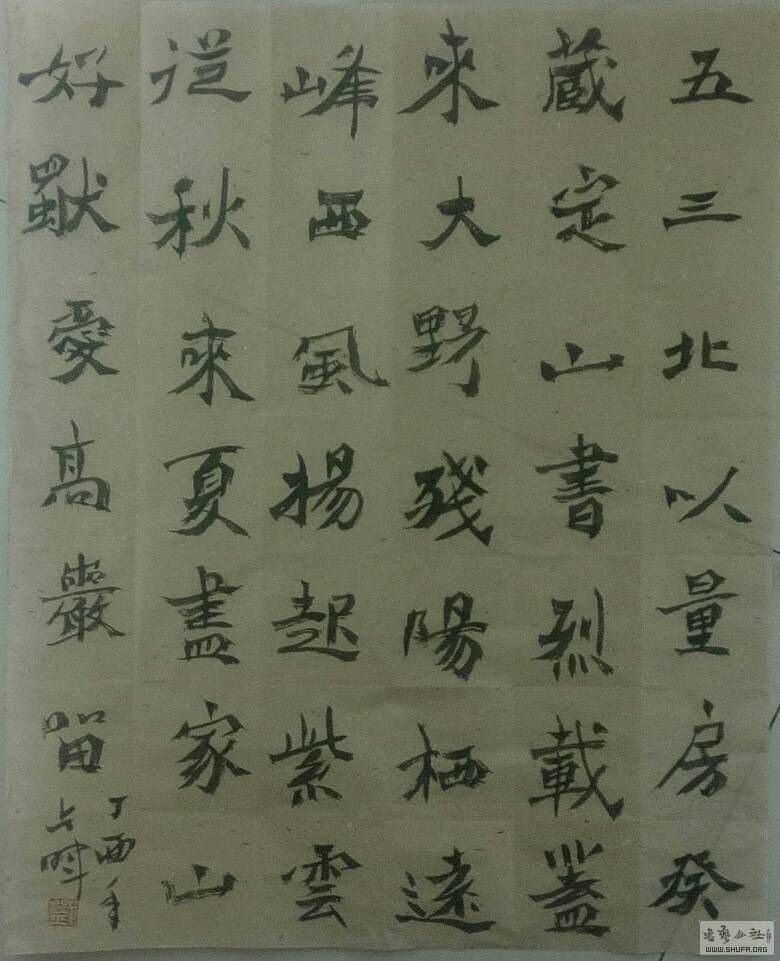 五三北以量房癸
蔵定山書烈載蓋
來大野殘陽栖遠
峰西風揚起紫雲
從秋來夏盡家山
好獸愛高巖留
丁酉年
WWW.SHUFA.ORG